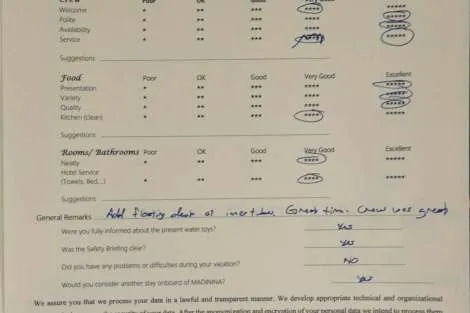 Crew Poor OK Good Very Good Excellent
Welcome * ** *** **** *****
Polite * ** *** **** *****
Availability * ** *** **** *****
Service * ** *** **** *****
Suggestions
Food Poor OK Good Very Good Excellent
Presentation * ** *** **** *****
Variety * ** *** **** *****
Quality * ** *** **** *****
Kitchen (clean) * ** *** **** *****
Suggestions
Rooms/ Bathrooms Poor OK Good Very Good Excellent
Neatly * ** *** **** *****
Hotel Service
(Towels, Bed,...) * ** *** **** *****
Suggestions
General Remarks Add floating or inner tubes Great time. Crew was great
Were you fully informed about the present water toys? Yes
Was the Safety Briefing clear? Yes
Did you have any problems or difficulties during your vacation? NO
Would you consider another stay onboard of MADINNA? Yes
We assure you that we process your data in a lawful and transparent manner. We develop appropriate technical and organizational
After the anonymization and encryption of your personal data we intend to process them